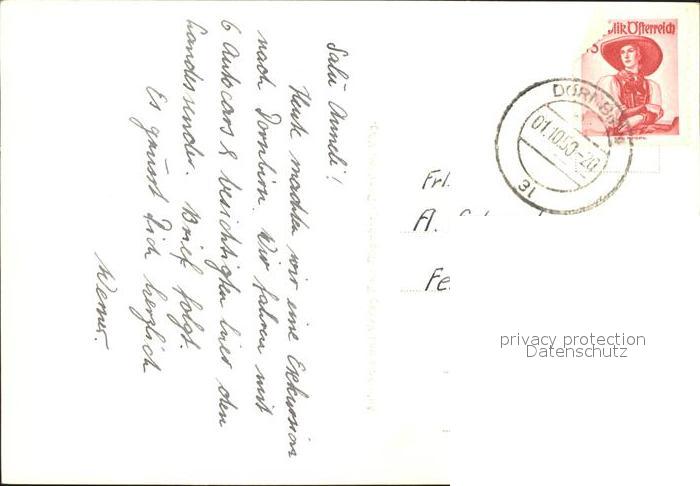 Salü Anneli!
Heute machten wir eine Exkursion
nach Dornbirn. Wir fahren mit
6 Autocars & besichtigen hier den
Landessender. Brief folgt.
Es grüsst Dich herzlich
Werner.
Frl.
A.
Fe
blik Österreich
DORNBIRN
01.10.50-20
31
privacy protection
Datenschutz